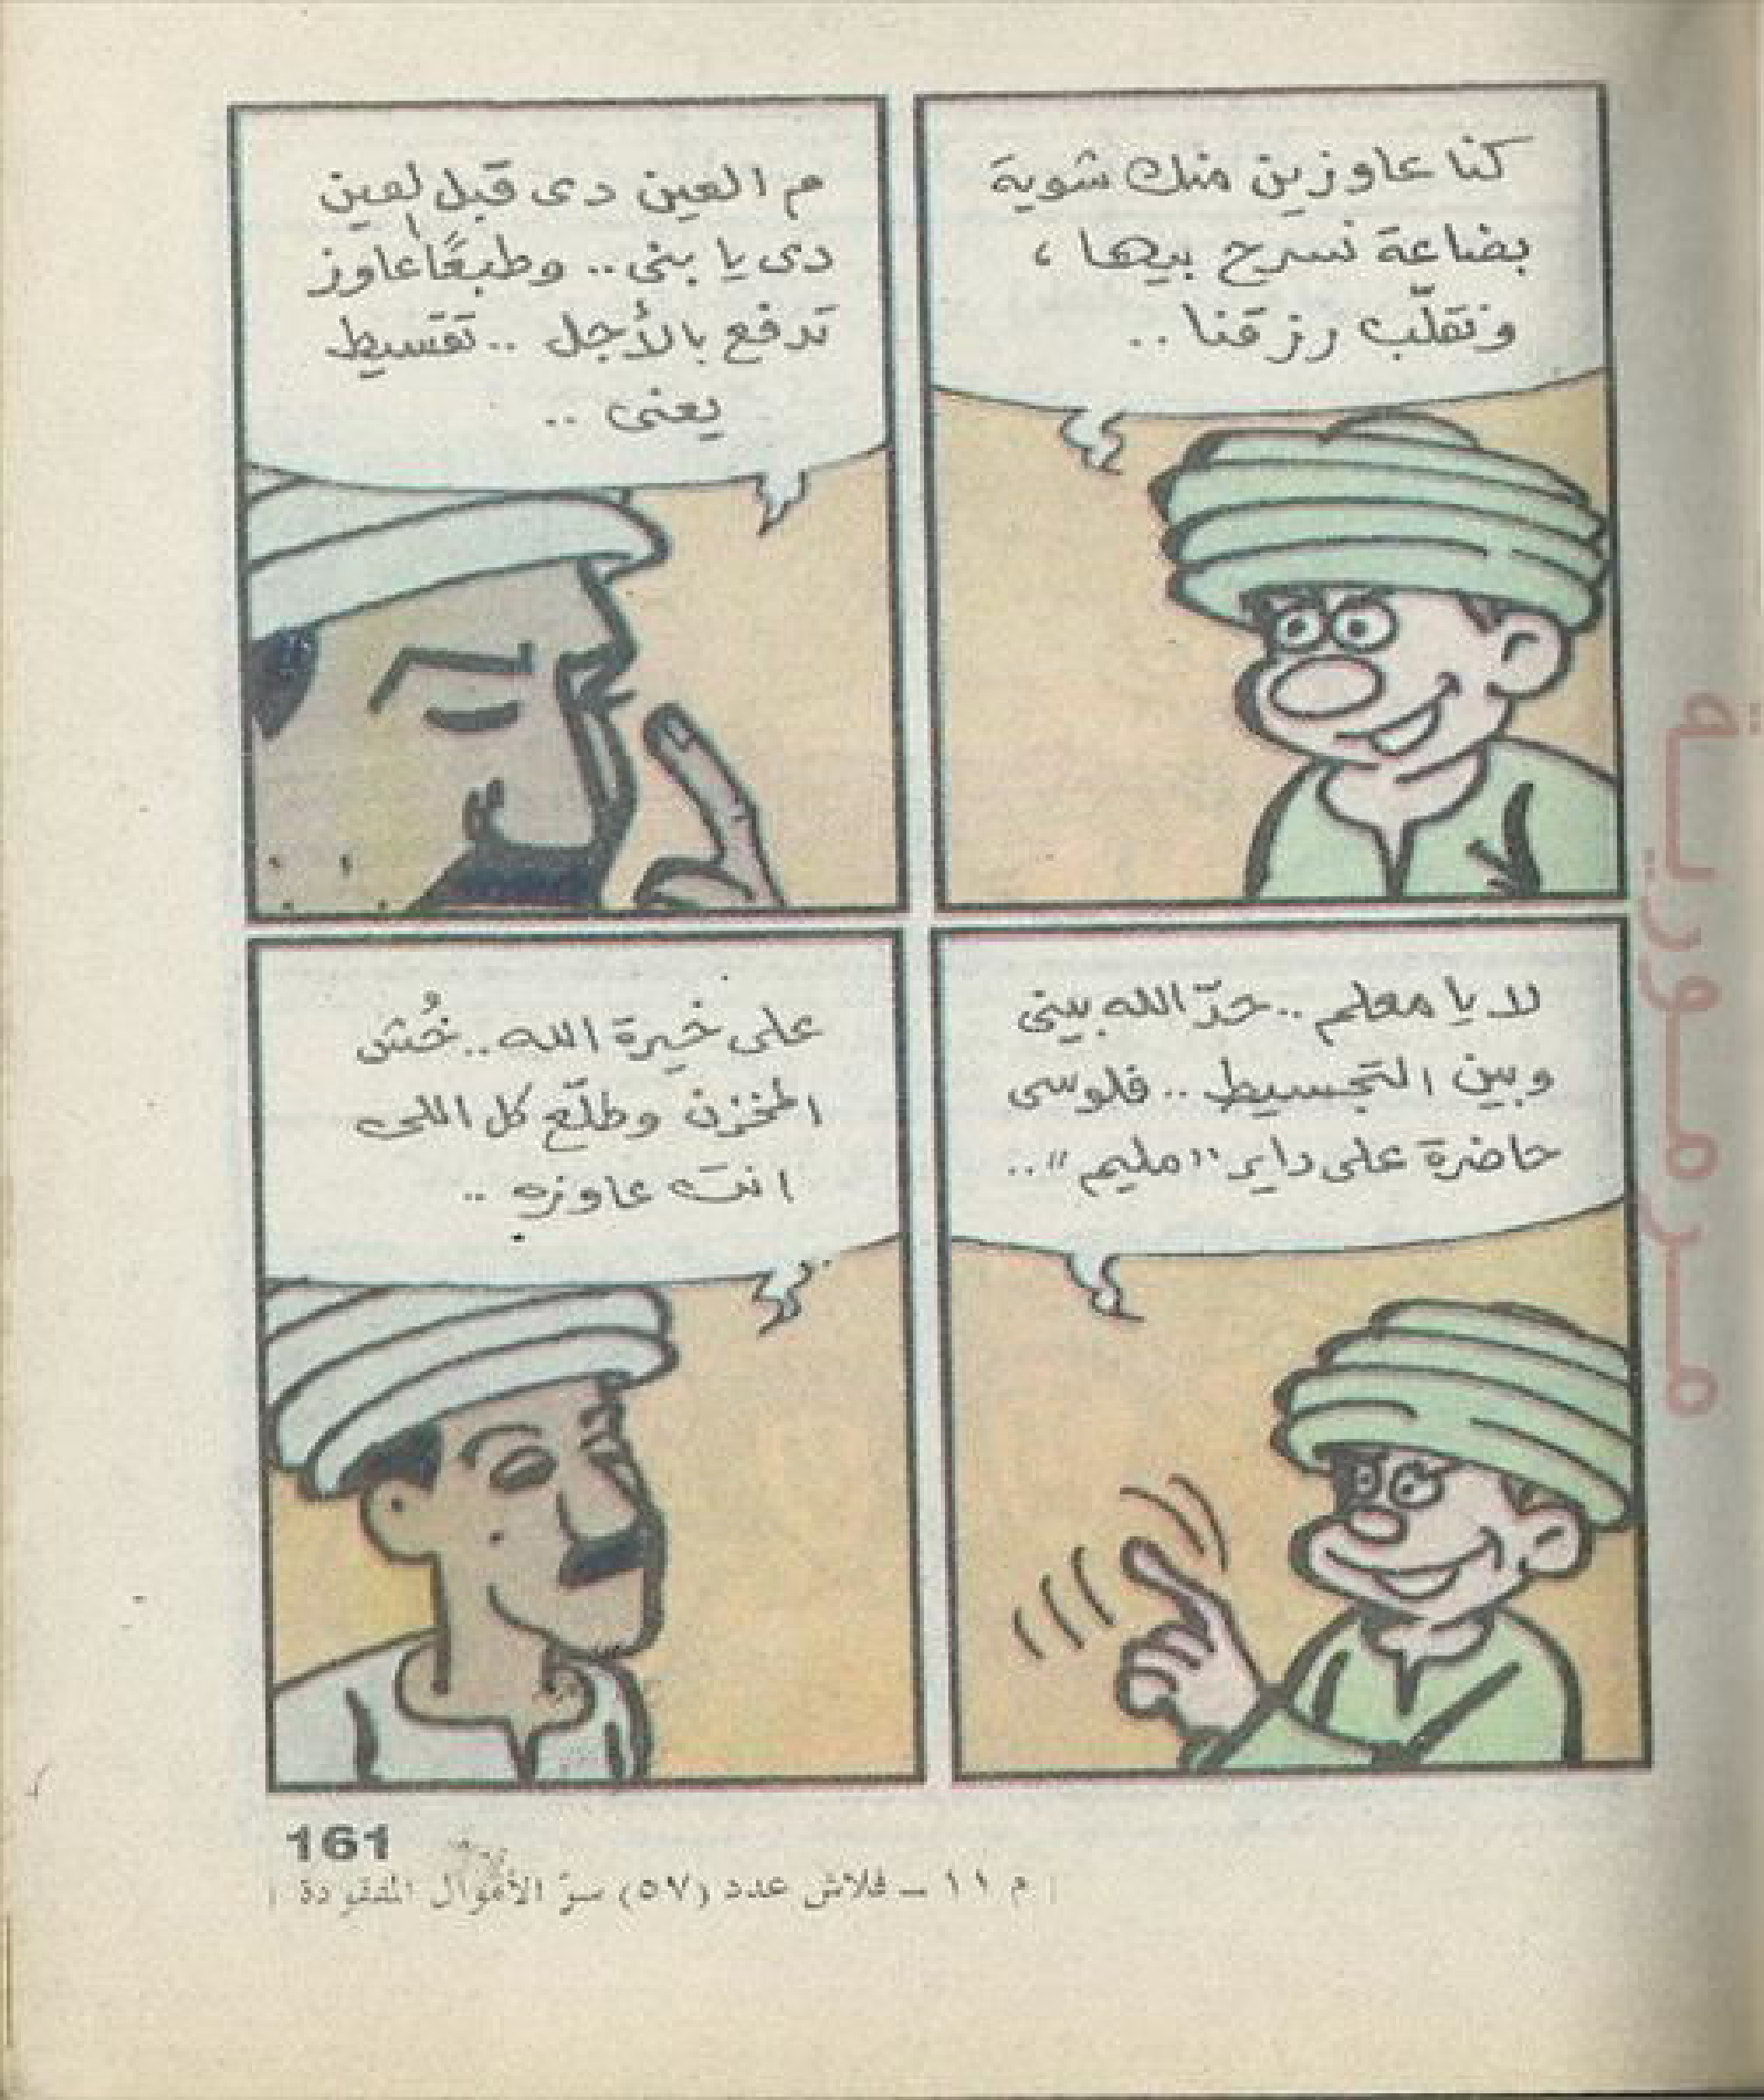 كنا عاوزين منك شوية
بضاعة نسرح بيها ،
ونقلّب رزقنا ..
م العين دى قبل العين
دى يا بنى .. وطبعًا عاوز
تدفع بالأجل .. تقسيط
يعنى ..
لا يا معلم .. حدّ الله بينى
وبين التجسيط .. فلوسى
حاضرة على داير "مليم" ..
على خيرة الله .. خُش
المخزن وطلّع كل اللى
انت عاوزه ..
161
م ١١ – فلاش عدد (٥٧) سرّ الأموال المفقودة
مرمورية